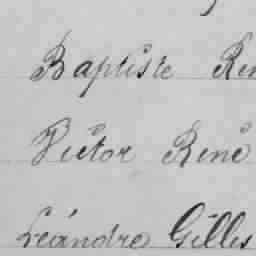 Baptiste Ren
Victor René
Léandre Gilles